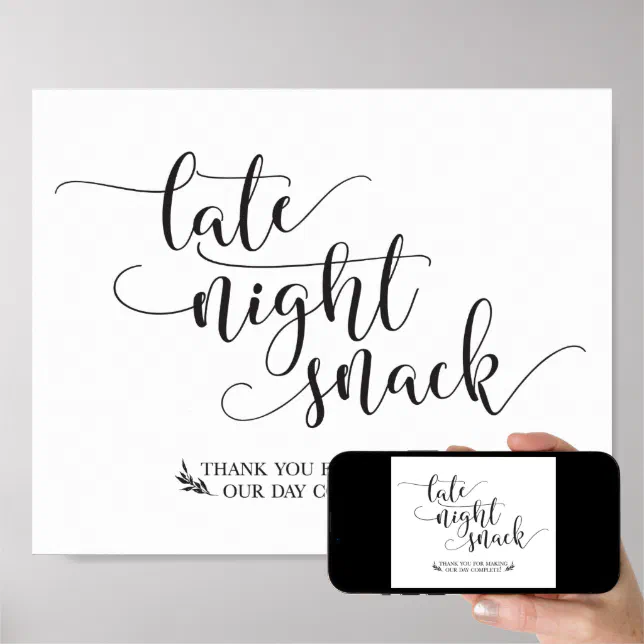 late
night
snack
THANK YOU F
OUR DAY CO
late
night
snack
THANK YOU FOR MAKING
OUR DAY COMPLETE!